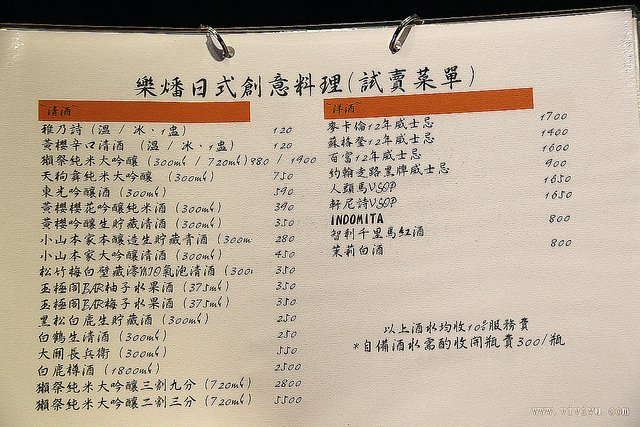 樂燔日式創意料理(試賣菜單)
清酒
雅乃詩 (溫 / 冰、1盅) 120
黃櫻辛口清酒 (溫 / 冰、1盅) 120
獺祭純米大吟釀 (300ml / 720ml) 980 / 1900
天狗舞純米大吟釀 (300ml) 750
東光吟釀酒 (300ml) 590
黃櫻櫻花吟釀純米酒 (300ml) 390
黃櫻吟釀生貯藏清酒 (300ml) 350
小山本家本釀造生貯藏青酒 (300m 280
小山本家大吟釀清酒 (300ml) 450
松竹梅白壁藏澪MIO氣泡清酒 (300 350
玉極閣BAR柚子水果酒 (375ml) 350
玉極閣BAR梅子水果酒 (375ml) 350
黑松白鹿生貯藏酒 (300ml) 250
白鶴生清酒 (300ml) 250
大關長兵衛 (300ml) 550
白鹿樽酒 (1800ml) 2500
獺祭純米大吟釀三割九分 (720ml) 2800
獺祭純米大吟釀二割三分 (720ml) 5500
洋酒
麥卡倫12年威士忌 1700
蘇格登12年威士忌 1400
百富12年威士忌 1600
約翰走路黑牌威士忌 900
人頭馬VSOP 1650
軒尼詩VSOP 1650
INDOMITA
智利千里馬紅酒 800
茉莉白酒 800
以上酒水均收10%服務費
*自備酒水需酌收開瓶費300/瓶
www.viviyu.com